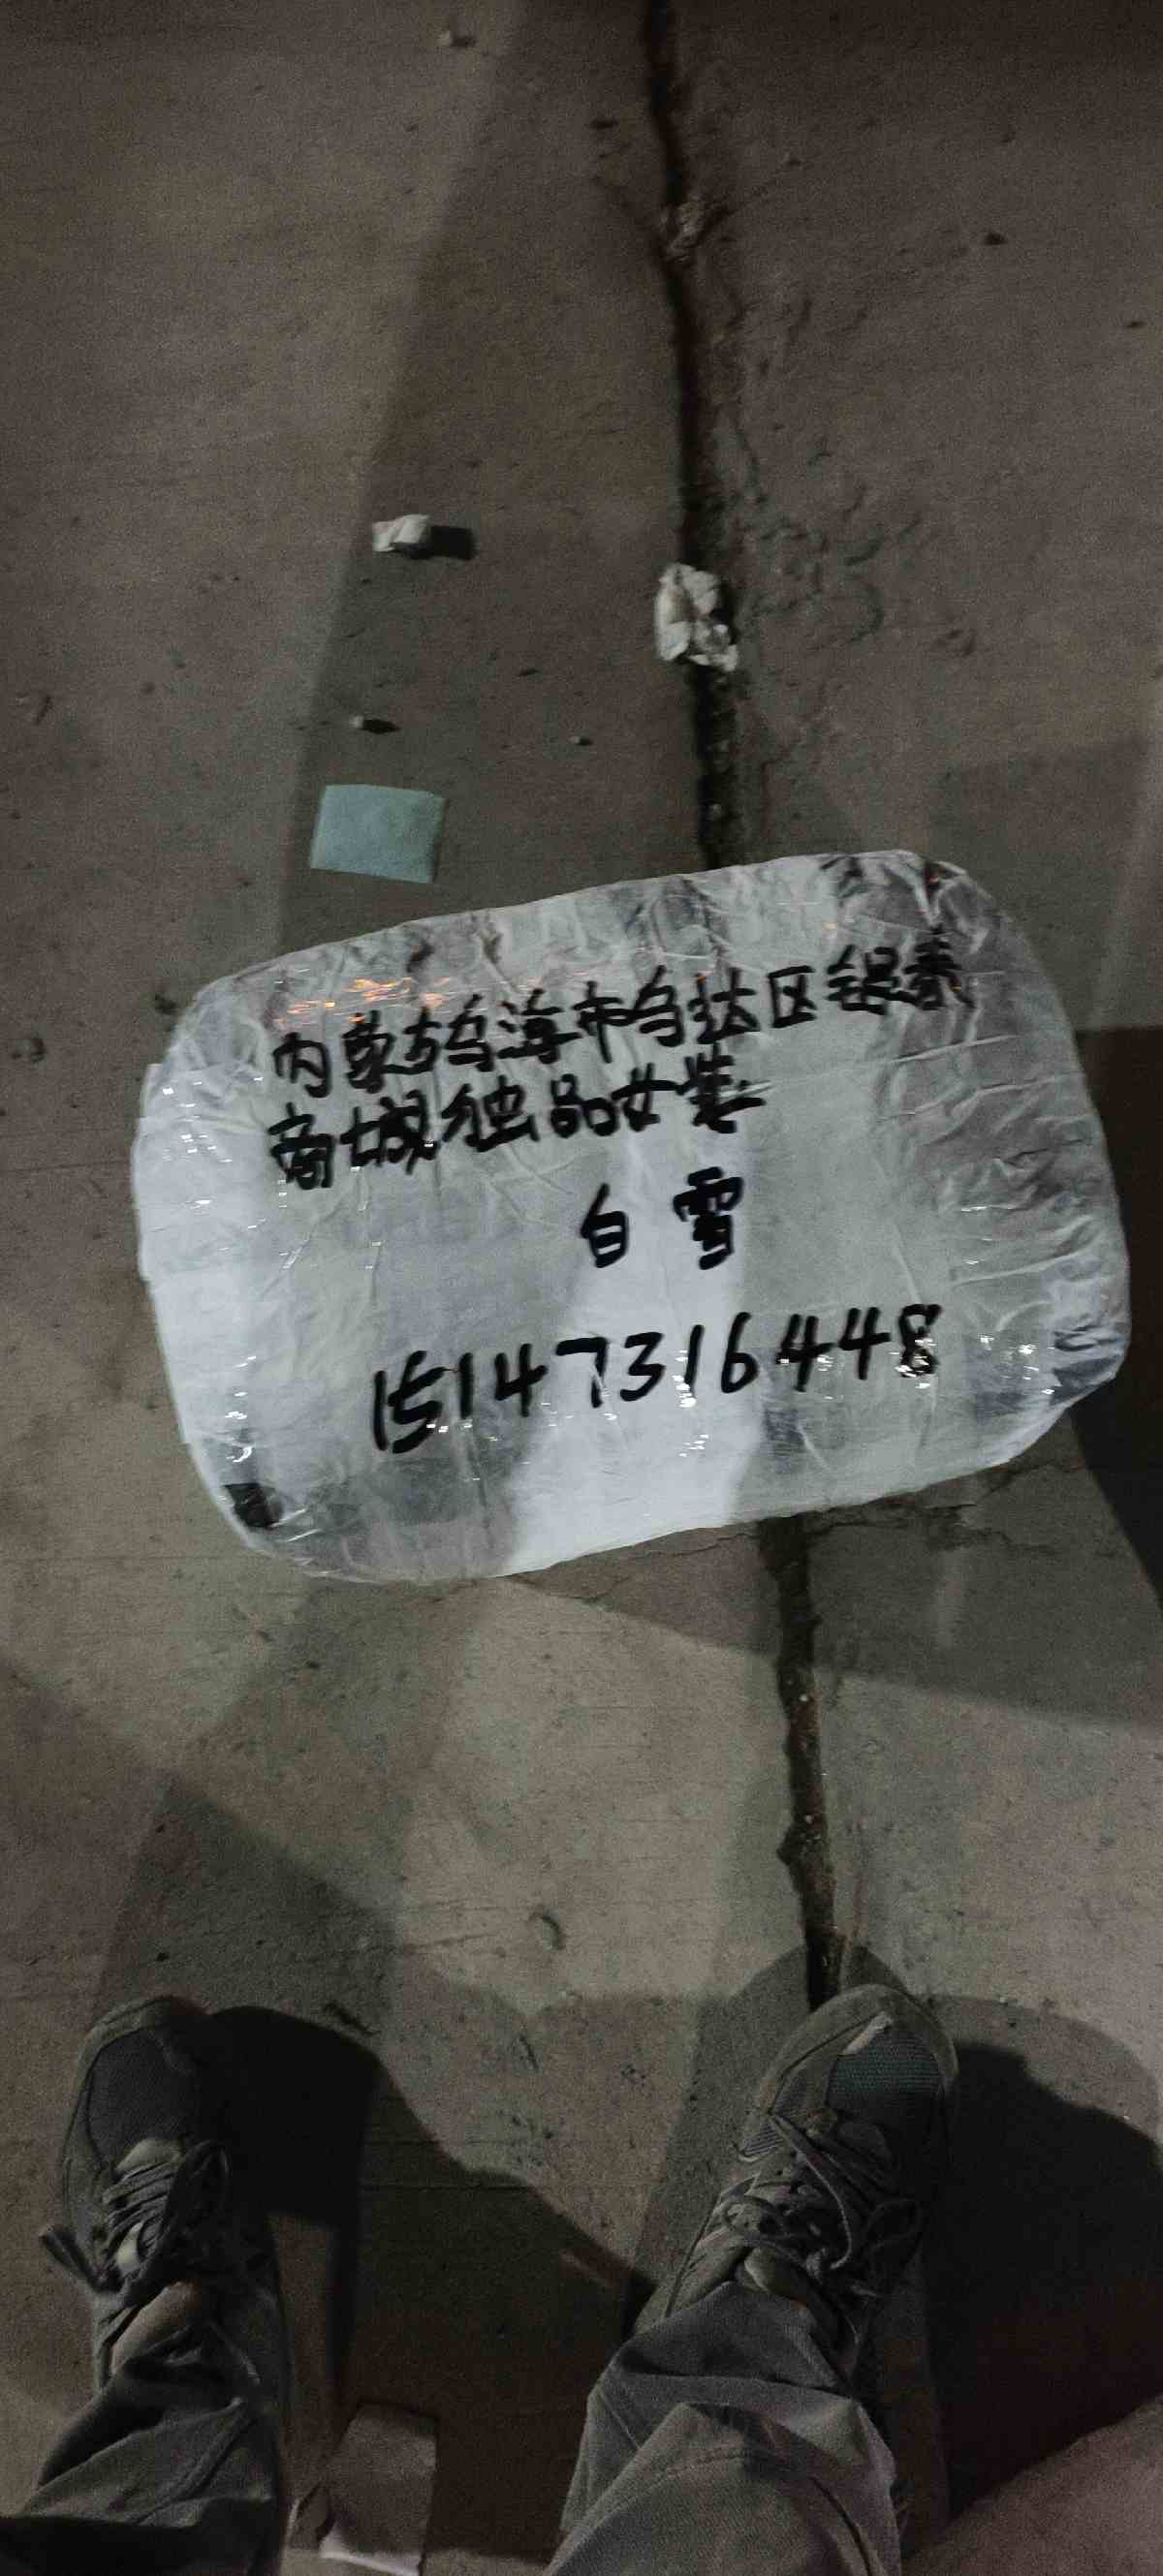 内蒙古乌海市乌达区银泰
商城独品女装
白雪
15147316448